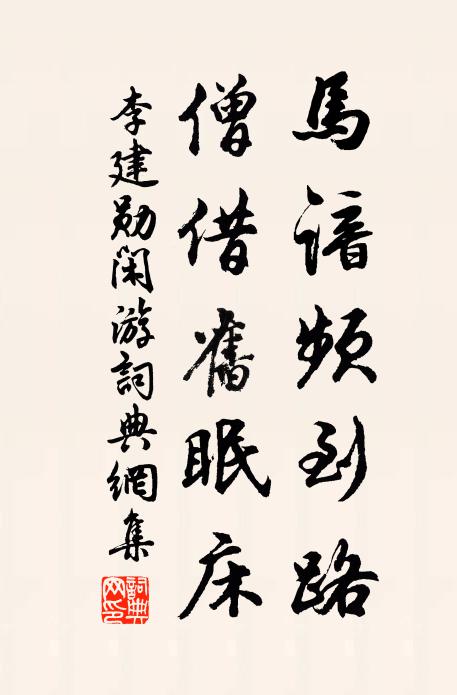 馬諳頻到路
僧借舊眠床
李建勋闲游詞典網集
詞典网印